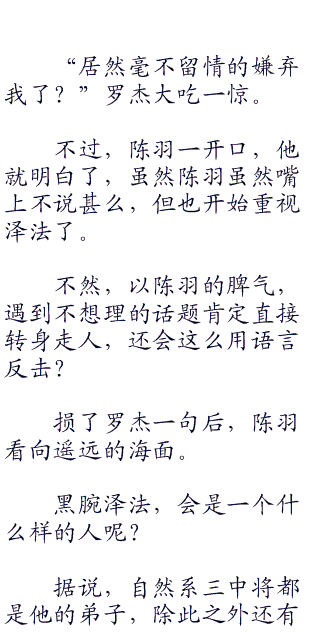 “居然毫不留情的嫌弃
我了？”罗杰大吃一惊。
不过，陈羽一开口，他
就明白了，虽然陈羽虽然嘴
上不说甚么，但也开始重视
泽法了。
不然，以陈羽的脾气，
遇到不想理的话题肯定直接
转身走人，还会这么用语言
反击？
损了罗杰一句后，陈羽
看向遥远的海面。
黑腕泽法，会是一个什
么样的人呢？
据说，自然系三中将都
是他的弟子，除此之外还有